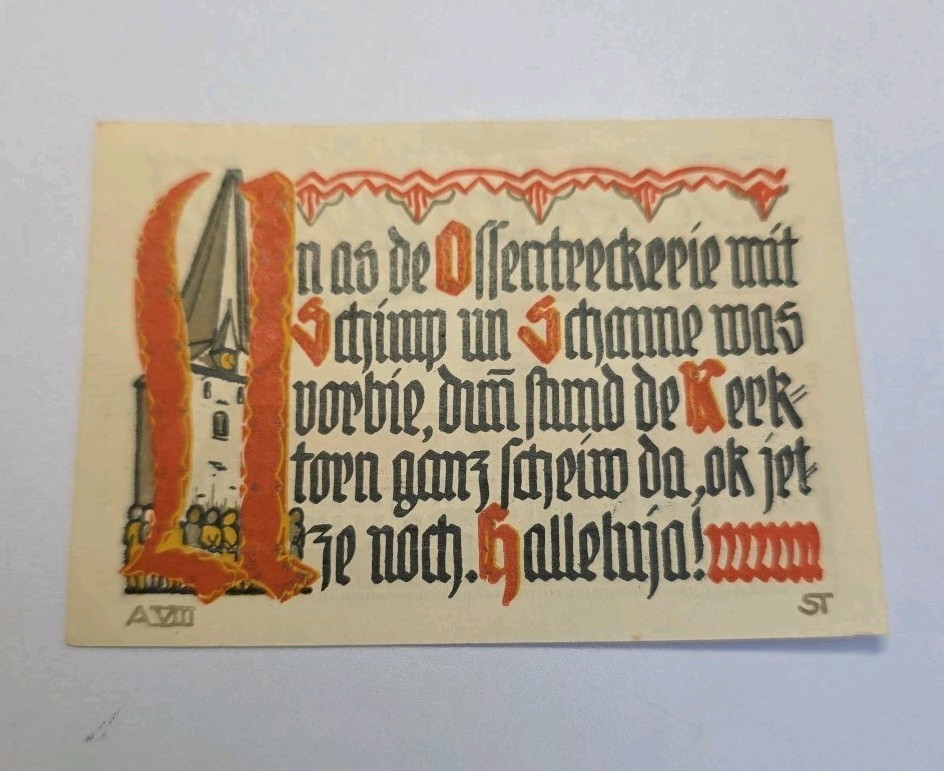 Un as de Ossentreckerie mit
Schimp un Schanne was
vorbie, dunn stund de Kerk-
torn ganz scheiw da, ok jet-
ze noch. Halleluja!
A VIII
ST